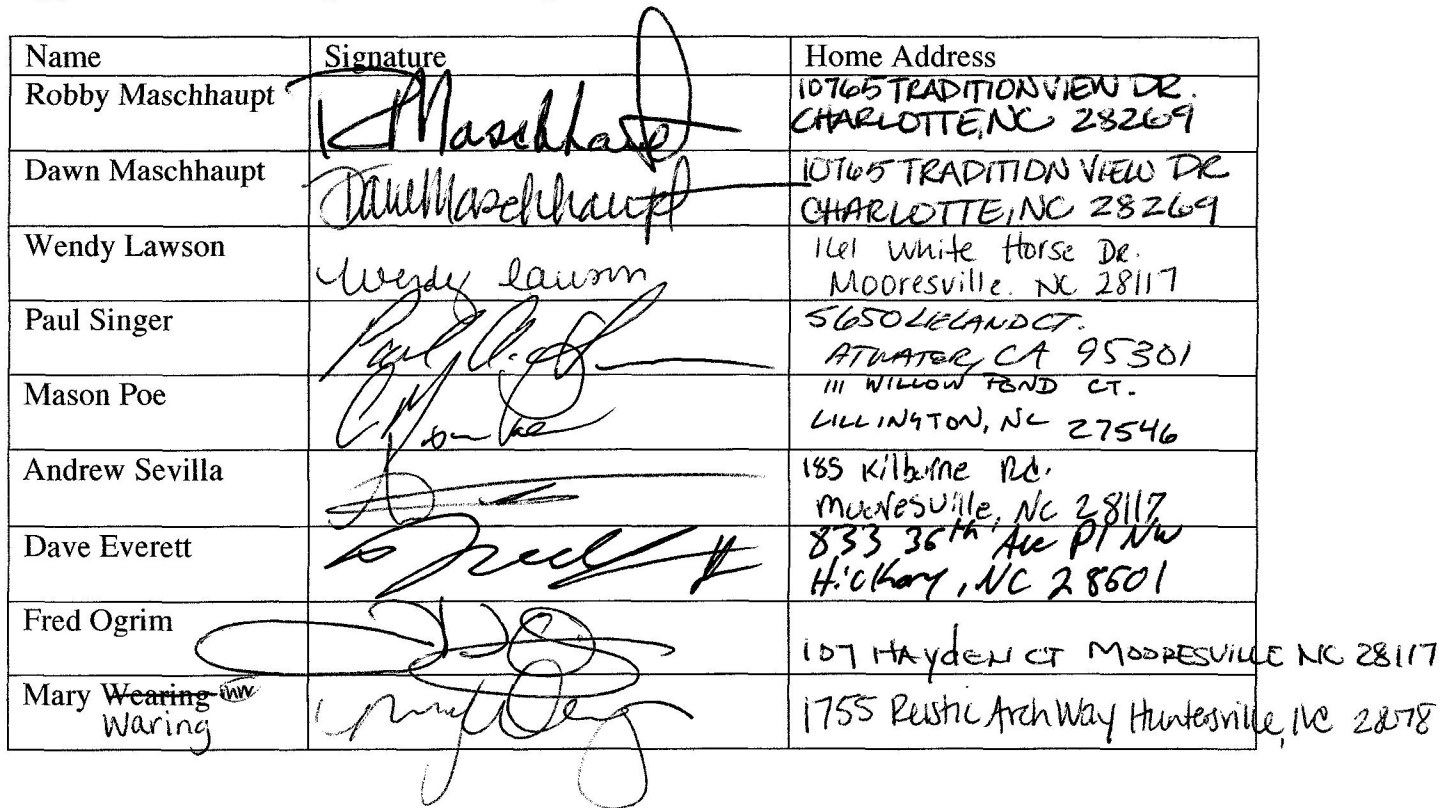 Name Signature Home Address
Robby Maschhaupt R Maschhaupt 10765 TRADITION VIEW DR.
CHARLOTTE, NC 28269
Dawn Maschhaupt Dawn Maschhaupt 10765 TRADITION VIEW DR
CHARLOTTE, NC 28269
Wendy Lawson Wendy Lawson 161 White Horse Dr.
Mooresville. NC 28117
Paul Singer Paul A. 5650 LELAND CT.
ATWATER, CA 95301
Mason Poe 111 WILLOW POND CT.
LILLINGTON, NC 27546
Andrew Sevilla 185 Kilborne Rd.
Mooresville, NC 28117
Dave Everett 833 36th Ave Pl NW
Hickory, NC 28601
Fred Ogrim 107 HAYDEN CT MOORESVILLE NC 28117
Mary Wearing mw
Waring 1755 Rustic Arch Way Huntersville, NC 28078